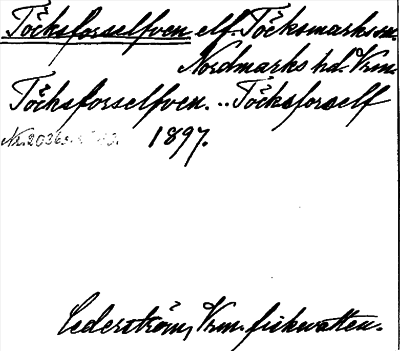 Töcksforselfven elf. Töcksmarks sn.
Nordmarks hd. Vrm.
Töcksforselfven. .. Töcksforself
1897.
Cederström, Vrm. fiskvatten.